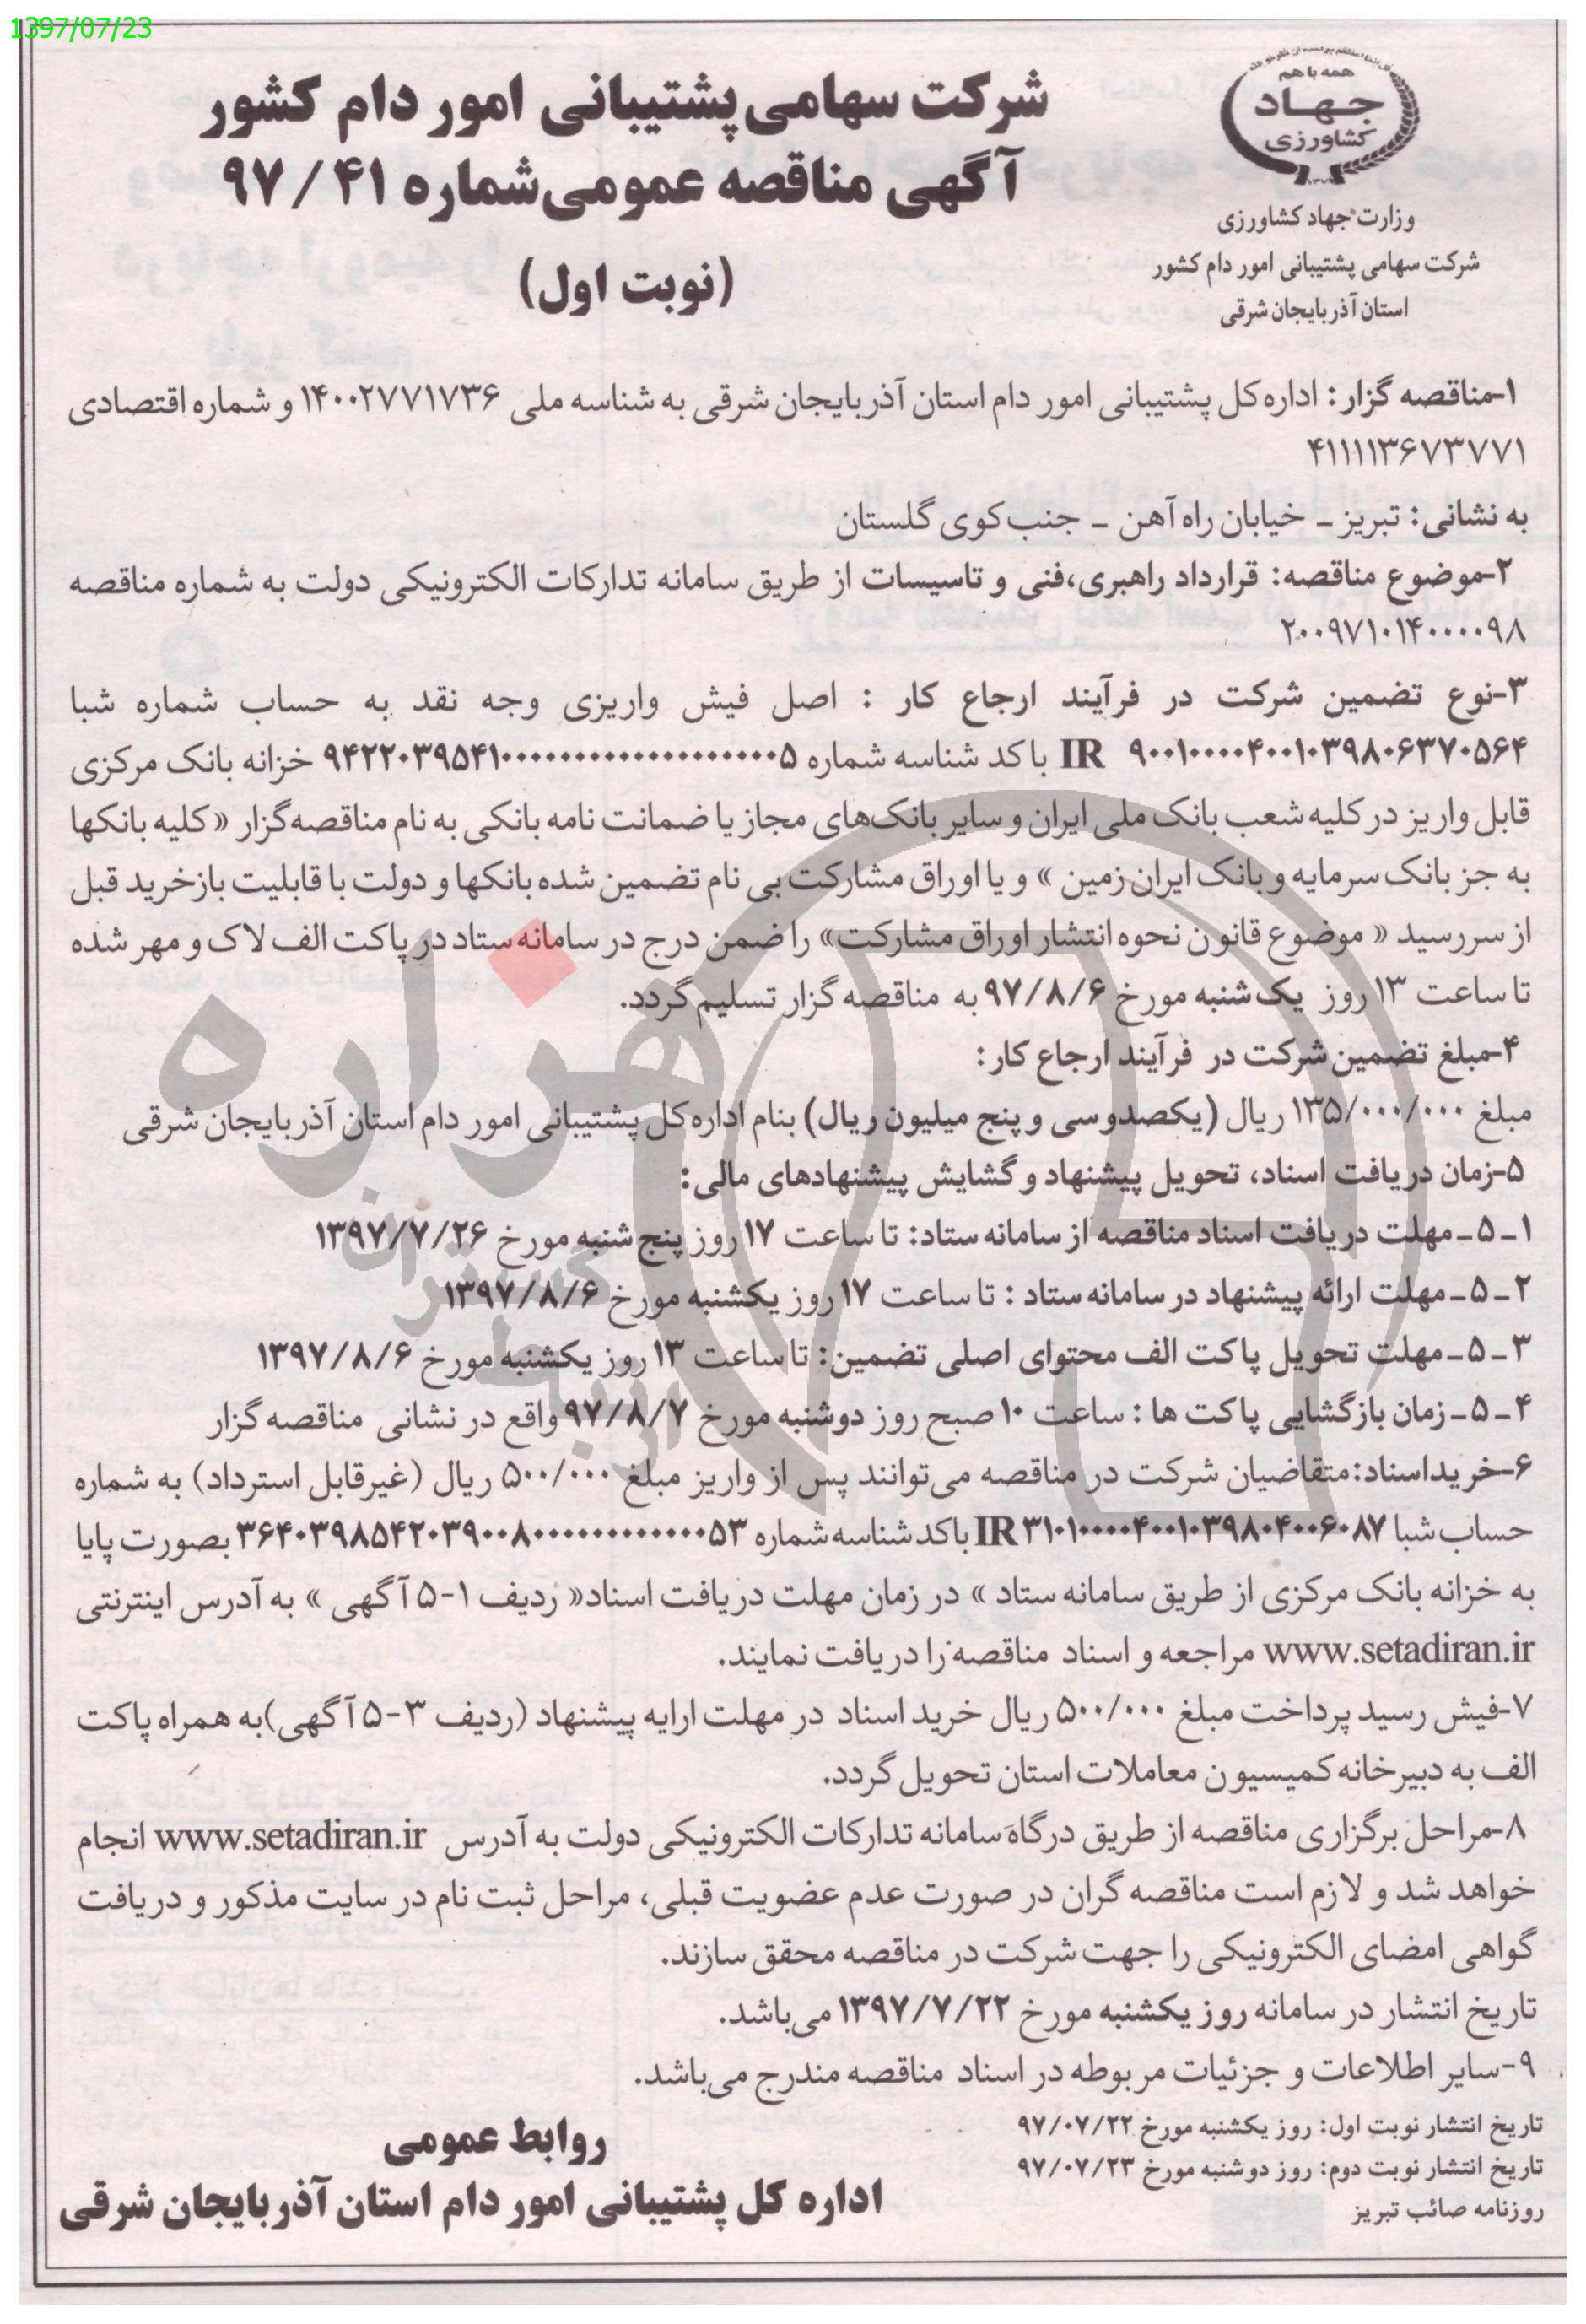 1397/07/23
همه با هم
جهاد
کشاورزی
وزارت جهاد کشاورزی
شرکت سهامی پشتیبانی امور دام کشور
استان آذربایجان شرقی
شرکت سهامی پشتیبانی امور دام کشور
آگهی مناقصه عمومی شماره ۴۱ / ۹۷
(نوبت اول)
۱-مناقصه گزار: اداره کل پشتیبانی امور دام استان آذربایجان شرقی به شناسه ملی ۱۴۰۰۲۷۷۱۷۳۶ و شماره اقتصادی
۴۱۱۱۱۳۶۷۳۷۷۱
به نشانی: تبریز ـ خیابان راه آهن ـ جنب کوی گلستان
۲-موضوع مناقصه: قرارداد راهبری،فنی و تاسیسات از طریق سامانه تدارکات الکترونیکی دولت به شماره مناقصه
۲۰۰۹۷۱۰۱۴۰۰۰۰۹۸
۳-نوع تضمین شرکت در فرآیند ارجاع کار : اصل فیش واریزی وجه نقد به حساب شماره شبا
IR ۹۰۰۱۰۰۰۰۴۰۰۱۰۳۹۸۰۶۳۷۰۵۶۴ با کد شناسه شماره خزانه بانک مرکزی
قابل واریز در کلیه شعب بانک ملی ایران و سایر بانک‌های مجاز یا ضمانت نامه بانکی به نام مناقصه‌گزار « کلیه بانکها
به جز بانک سرمایه و بانک ایران زمین » و یا اوراق مشارکت بی نام تضمین شده بانکها و دولت با قابلیت بازخرید قبل
از سررسید « موضوع قانون نحوه انتشار اوراق مشارکت» را ضمن درج در سامانه ستاد در پاکت الف لاک و مهر شده
تا ساعت ۱۳ روز یک شنبه مورخ ۹۷/۸/۶ به مناقصه گزار تسلیم گردد.
۴-مبلغ تضمین شرکت در فرآیند ارجاع کار:
مبلغ ۱۳۵/۰۰۰/۰۰۰ ریال (یکصدوسی و پنج میلیون ریال) بنام اداره کل پشتیبانی امور دام استان آذربایجان شرقی
۵-زمان دریافت اسناد، تحویل پیشنهاد و گشایش پیشنهادهای مالی:
۱ـ۵ـ مهلت دریافت اسناد مناقصه از سامانه ستاد: تا ساعت ۱۷ روز پنج شنبه مورخ ۱۳۹۷/۷/۲۶
۲ـ۵ـ مهلت ارائه پیشنهاد در سامانه ستاد : تا ساعت ۱۷ روز یکشنبه مورخ ۱۳۹۷/۸/۶
۳ـ۵ـ مهلت تحویل پاکت الف محتوای اصلی تضمین: تا ساعت ۱۳ روز یکشنبه مورخ ۱۳۹۷/۸/۶
۴ـ۵ـ زمان بازگشایی پاکت ها : ساعت ۱۰ صبح روز دوشنبه مورخ ۹۷/۸/۷ واقع در نشانی مناقصه گزار
۶-خریداسناد:متقاضیان شرکت در مناقصه می‌توانند پس از واریز مبلغ ۵۰۰/۰۰۰ ریال (غیرقابل استرداد) به شماره
حساب شبا IR ۳۱۰۱۰۰۰۰۴۰۰۱۰۳۹۸۰۴۰۰۶۰۸۷ با کد شناسه شماره بصورت پایا
به خزانه بانک مرکزی از طریق سامانه ستاد » در زمان مهلت دریافت اسناد« ردیف ۱-۵ آگهی » به آدرس اینترنتی
www.setadiran.ir مراجعه و اسناد مناقصه را دریافت نمایند.
۷-فیش رسید پرداخت مبلغ ۵۰۰/۰۰۰ ریال خرید اسناد در مهلت ارایه پیشنهاد (ردیف ۳-۵ آگهی)به همراه پاکت
الف به دبیرخانه کمیسیون معاملات استان تحویل گردد.
۸-مراحل برگزاری مناقصه از طریق درگاه سامانه تدارکات الکترونیکی دولت به آدرس www.setadiran.ir انجام
خواهد شد و لازم است مناقصه گران در صورت عدم عضویت قبلی، مراحل ثبت نام در سایت مذکور و دریافت
گواهی امضای الکترونیکی را جهت شرکت در مناقصه محقق سازند.
تاریخ انتشار در سامانه روز یکشنبه مورخ ۱۳۹۷/۷/۲۲ می‌باشد.
۹-سایر اطلاعات و جزئیات مربوطه در اسناد مناقصه مندرج می‌باشد.
تاریخ انتشار نوبت اول: روز یکشنبه مورخ ۹۷/۰۷/۲۲
تاریخ انتشار نوبت دوم: روز دوشنبه مورخ ۹۷/۰۷/۲۳
روزنامه صائب تبریز
روابط عمومی
اداره کل پشتیبانی امور دام استان آذربایجان شرقی
هزاره